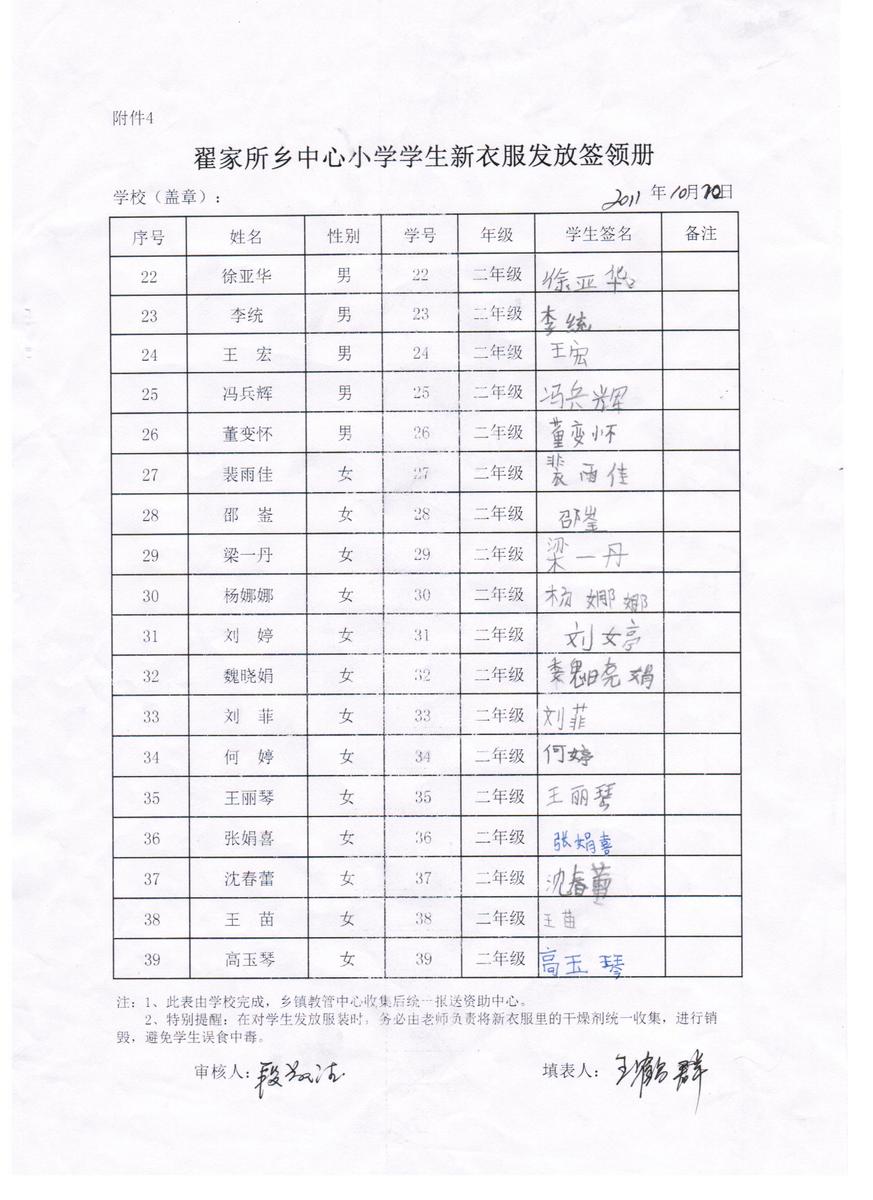 附件4
翟家所乡中心小学学生新衣服发放签领册
学校（盖章）： 2011 年 10月 日
序号 姓名 性别 学号 年级 学生签名 备注
22 徐亚华 男 22 二年级 徐亚华
23 李统 男 23 二年级 李统
24 王 宏 男 24 二年级 王宏
25 冯兵辉 男 25 二年级 冯兵辉
26 董变怀 男 26 二年级 董变怀
27 裴雨佳 女 27 二年级 裴雨佳
28 邵 崟 女 28 二年级 邵崟
29 梁一丹 女 29 二年级 梁一丹
30 杨娜娜 女 30 二年级 杨娜娜
31 刘 婷 女 31 二年级 刘婷
32 魏晓娟 女 32 二年级 魏晓娟
33 刘 菲 女 33 二年级 刘菲
34 何 婷 女 34 二年级 何婷
35 王丽琴 女 35 二年级 王丽琴
36 张娟喜 女 36 二年级 张娟喜
37 沈春蕾 女 37 二年级 沈春蕾
38 王 苗 女 38 二年级 王苗
39 高玉琴 女 39 二年级 高玉琴
注：1、此表由学校完成，乡镇教管中心收集后统一报送资助中心。
2、特别提醒：在对学生发放服装时，务必由老师负责将新衣服里的干燥剂统一收集，进行销
毁，避免学生误食中毒。
审核人： 填表人：